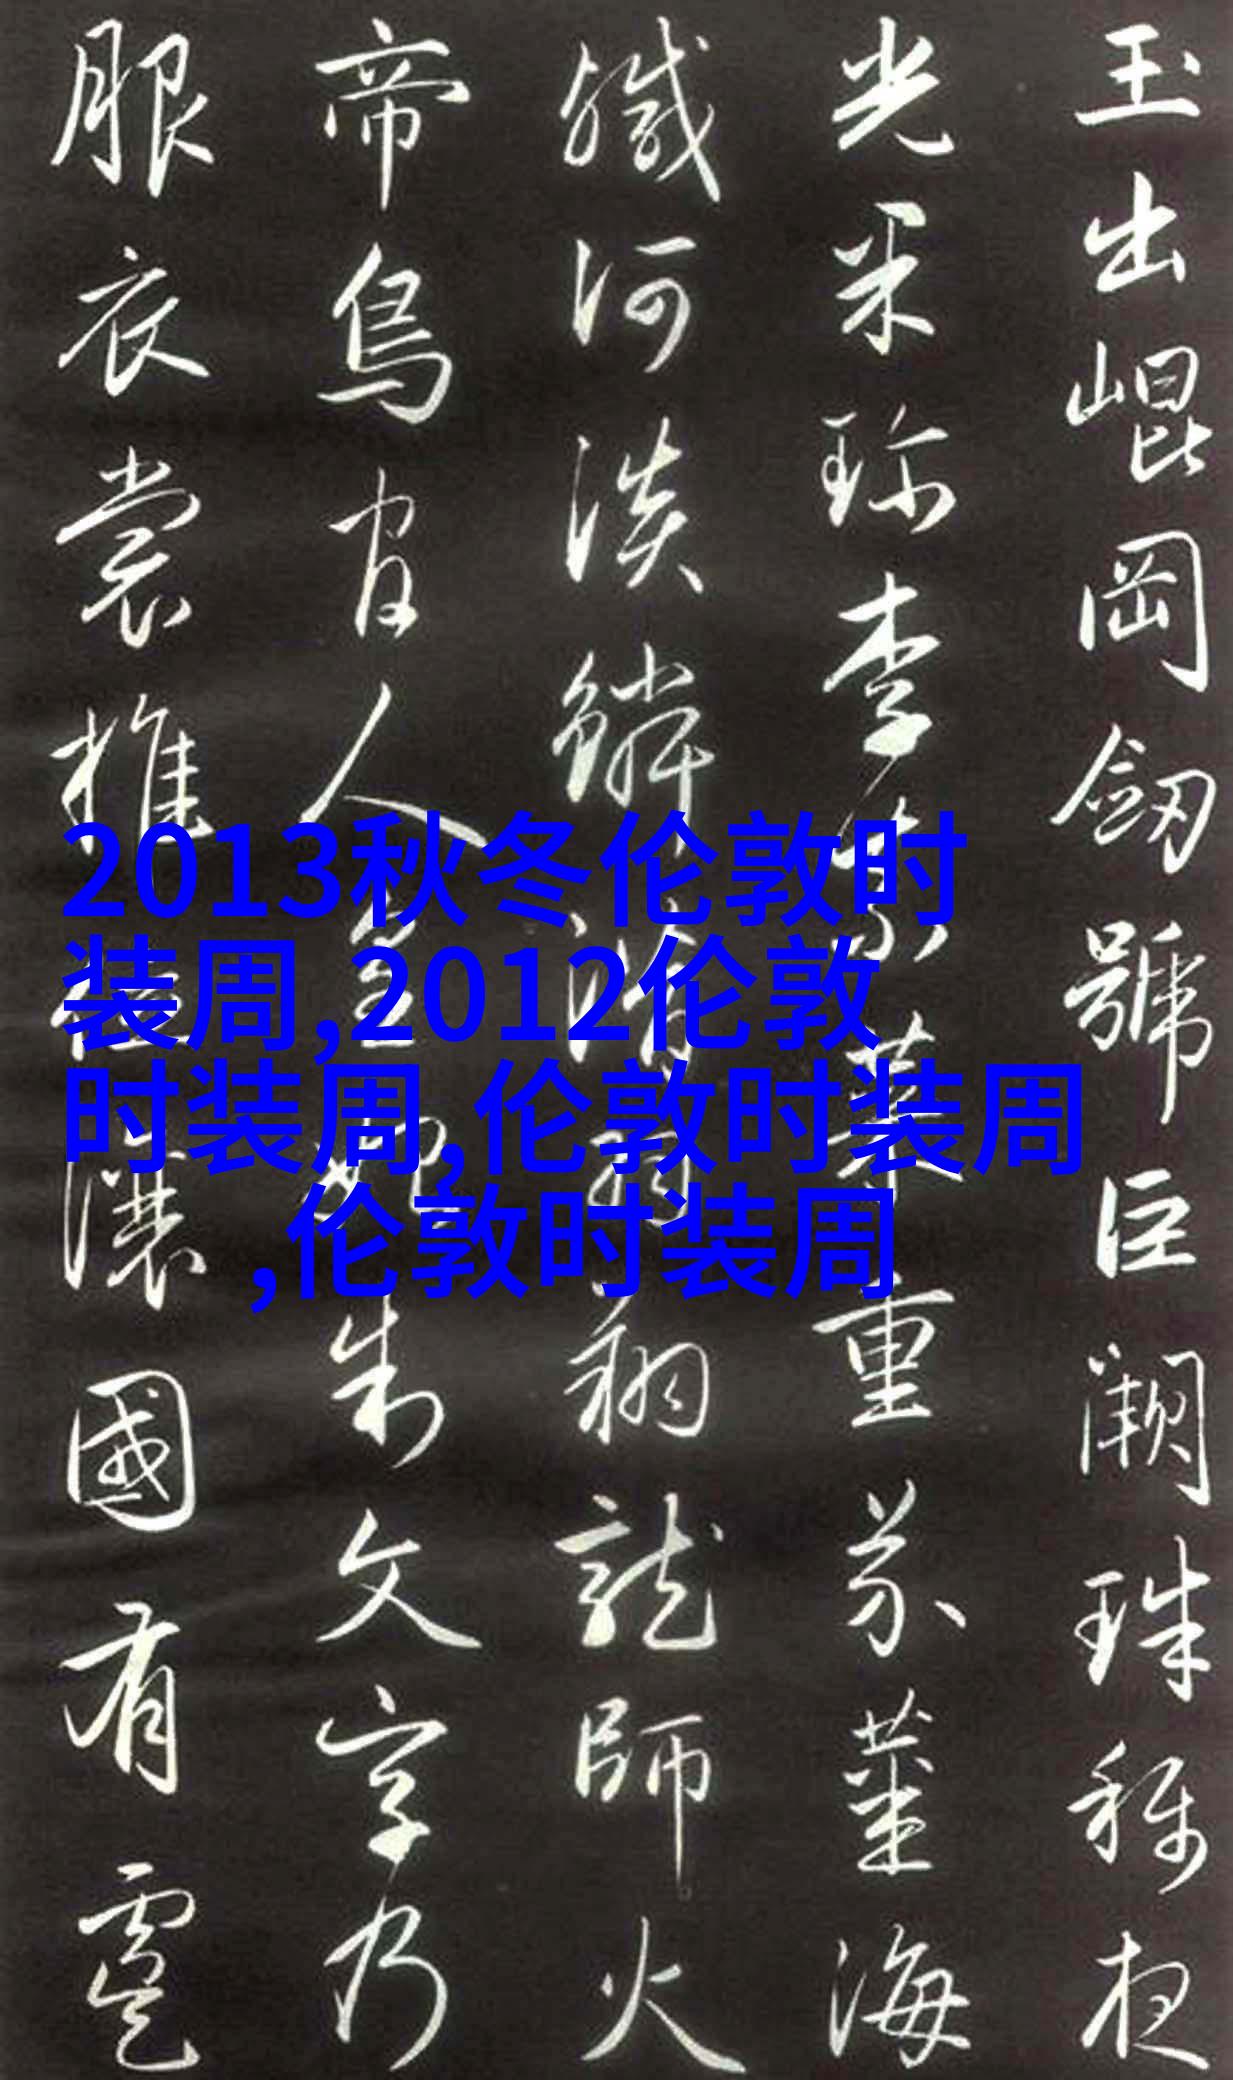 玉出崐岡劔號巨闕珠稱夜
光果珍李柰菜重芥薑海
鹹河淡鱗潛羽翔龍師火
帝鳥官人皇始制文字乃
服衣裳推位讓國有虞
2013秋冬伦敦时
装周,2012伦敦
时装周,伦敦时装周
,伦敦时装周